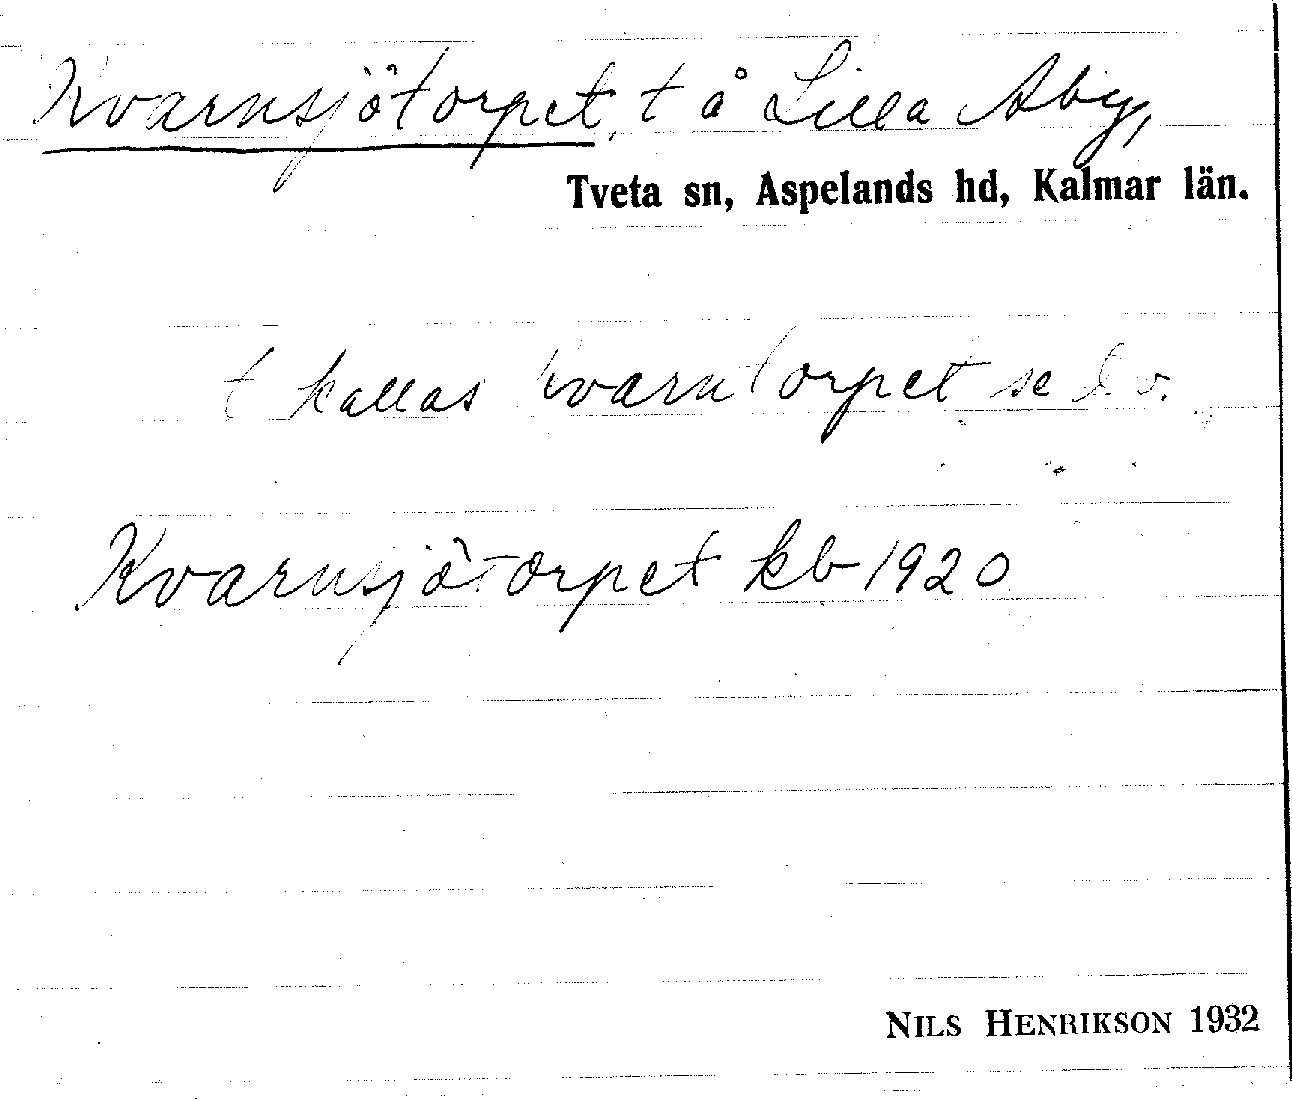 Kvarnsjötorpet, t å Lilla Åby,
Tveta sn, Aspelands hd, Kalmar län.
t kallas kvarntorpet se d. o.
Kvarnsjötorpet kb 1920
NILS HENRIKSON 1932